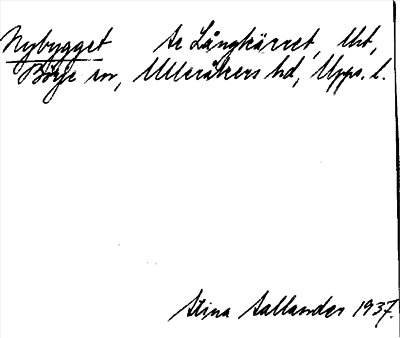 Nybygget se Långkärret, lht,
Börje sn, Ulleråkers hd, Upps. l.
Stina Sallander 1937.